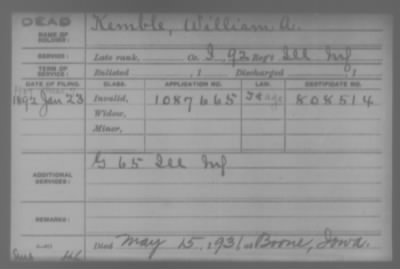 DEAD
NAME OF SOLDIER: Kemble, William A.
SERVICE: Late rank, Co. I, 92 Reg't Ill Inf
TERM OF SERVICE: Enlisted , 1 Discharged , 1
DATE OF FILING. CLASS. APPLICATION NO. LAW. CERTIFICATE NO.
1892 Jan 23 Invalid, 1087665 808514
Widow,
Minor,
G 65 Ill Inf
ADDITIONAL SERVICES:
REMARKS:
Died May 15, 1931 at Boone, Iowa.